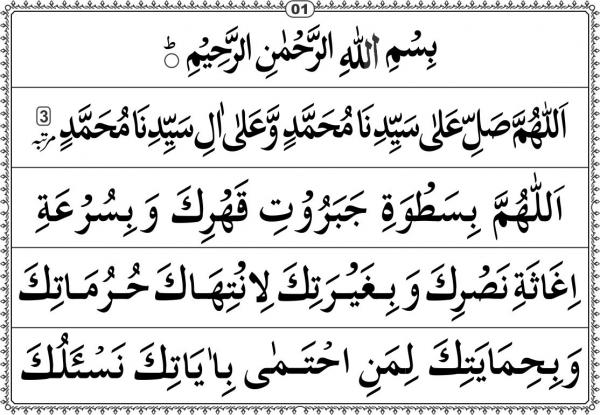 01
بِسْمِ اللهِ الرَّحْمٰنِ الرَّحِيْمِ ؕ
اَللّٰهُمَّ صَلِّ عَلٰى سَيِّدِنَا مُحَمَّدٍ وَّعَلٰى اٰلِ سَيِّدِنَا مُحَمَّدٍ 3 مرتبہ
اَللّٰهُمَّ بِسَطْوَةِ جَبَرُوْتِ قَهْرِكَ وَبِسُرْعَةِ
اِغَاثَةِ نَصْرِكَ وَبِغَيْرَتِكَ لِانْتِهَاكَ حُرُمَاتِكَ
وَبِحِمَايَتِكَ لِمَنِ احْتَمٰى بِاٰيَاتِكَ نَسْئَلُكَ